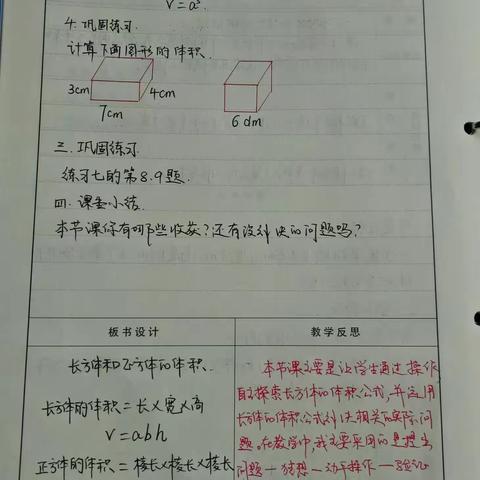 V=a³.
4. 巩固练习.
计算下面图形的体积.
3cm 4cm
7cm
6dm
三. 巩固练习.
练习七的第8.9题.
四. 课堂小结.
本节课你有哪些收获?还有没解决的问题吗?
板书设计
长方体和正方体的体积.
长方体的体积=长×宽×高
V=abh
正方体的体积=棱长×棱长×棱长
教学反思
本节课主要是让学生通过操作,
自主探索长方体的体积公式,并运用
长方体的体积公式解决相关的实际问
题。在教学中,我主要采用的是提出
问题—猜想—动手操作—验证